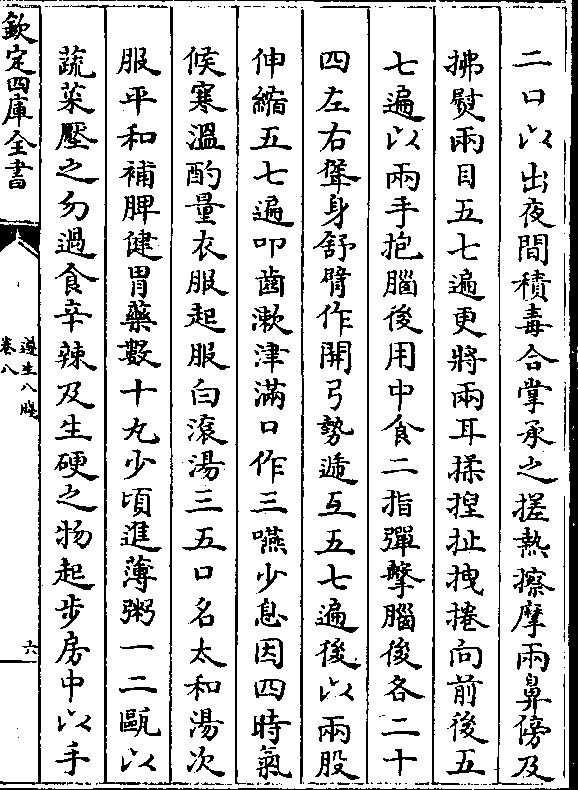 二口以出夜間積毒合掌承之搓熱擦摩兩鼻傍及
拂熨兩目五七遍更將兩耳揉揑扯拽捲向前後五
七遍以兩手抱腦後用中食二指彈擊腦後各二十
四左右聳身舒臂作開弓勢遞互五七遍後以兩股
伸縮五七遍叩齒漱津滿口作三嚥少息因四時氣
候寒溫酌量衣服起服白滾湯三五口名太和湯次
服平和補脾健胃藥數十丸少頃進薄粥一二甌以
蔬菜壓之勿過食辛辣及生硬之物起步房中以手
欽定四庫全書
遵生八牋
卷八
六